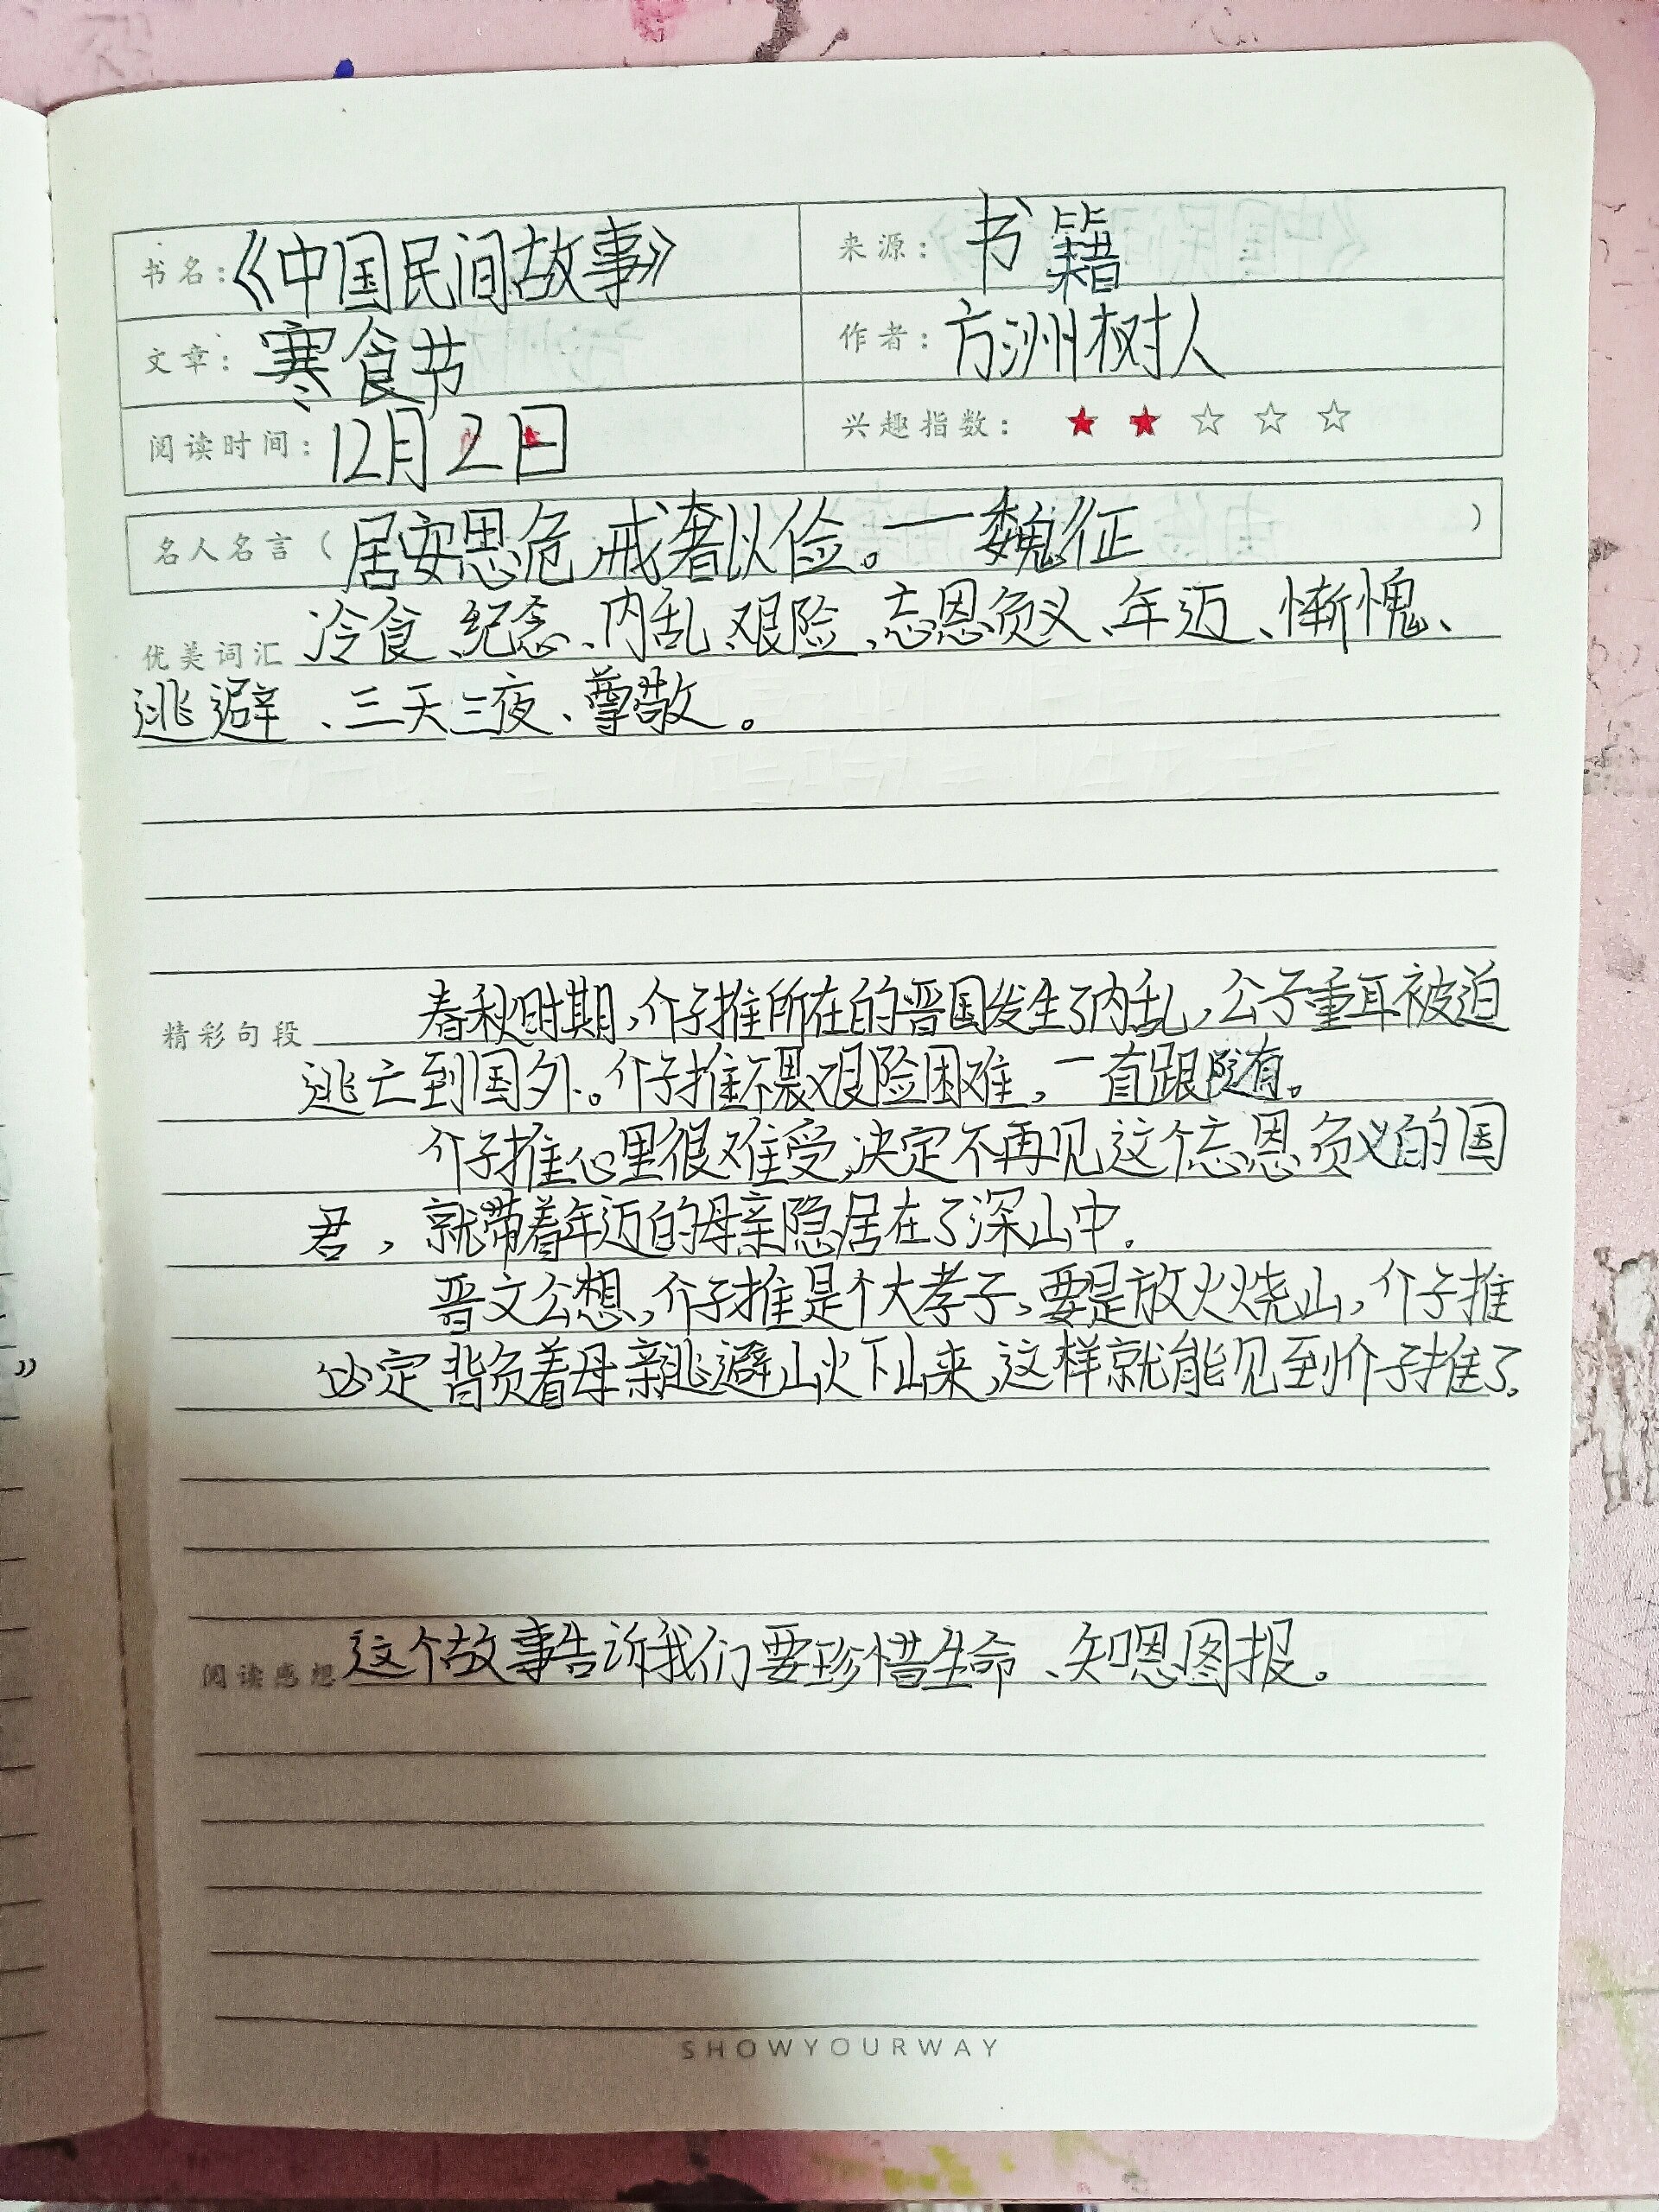 书名：《中国民间故事》 来源：书籍
文章：寒食节 作者：方洲树人
阅读时间：12月2日 兴趣指数：★★☆☆☆
名人名言（居安思危，戒奢以俭。——魏征）
优美词汇 冷食、纪念、内乱、艰险、忘恩负义、年迈、惭愧、
逃避、三天三夜、尊敬。
精彩句段 春秋时期，介子推所在的晋国发生了内乱，公子重耳被迫
逃亡到国外。介子推不畏艰险困难，一直跟随着。
介子推心里很难受，决定不再见这个忘恩负义的国
君，就带着年迈的母亲隐居在了深山中。
晋文公想，介子推是个大孝子，要是放火烧山，介子推
必定背负着母亲逃避山火下山来，这样就能见到介子推了。
”
阅读感想 这个故事告诉我们要珍惜生命、知恩图报。
SHOWYOURWAY